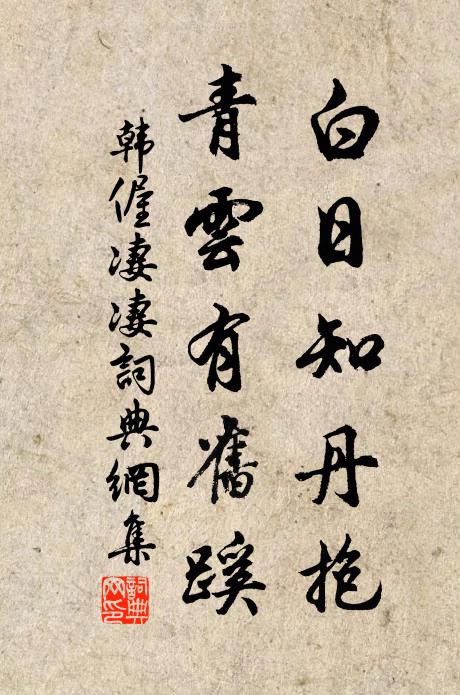 白日知丹抱
青雲有舊蹊
韩偓凄凄詞典網集
詞典网印